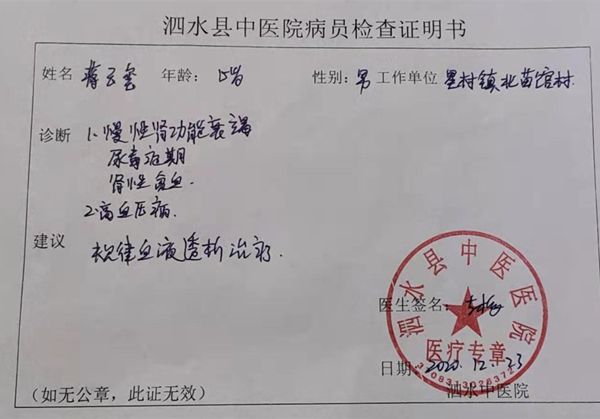 泗水县中医院病员检查证明书
姓名 蒋 年龄: 岁 性别: 男 工作单位 星村镇北苗馆村
诊断 1.慢性肾功能衰竭
尿毒症期
肾性贫血.
2.高血压病.
建议 规律血液透析治疗.
泗水县中医医院
医疗专章
医生签名:
日期: 2020.12.23
(如无公章，此证无效) 泗水中医院